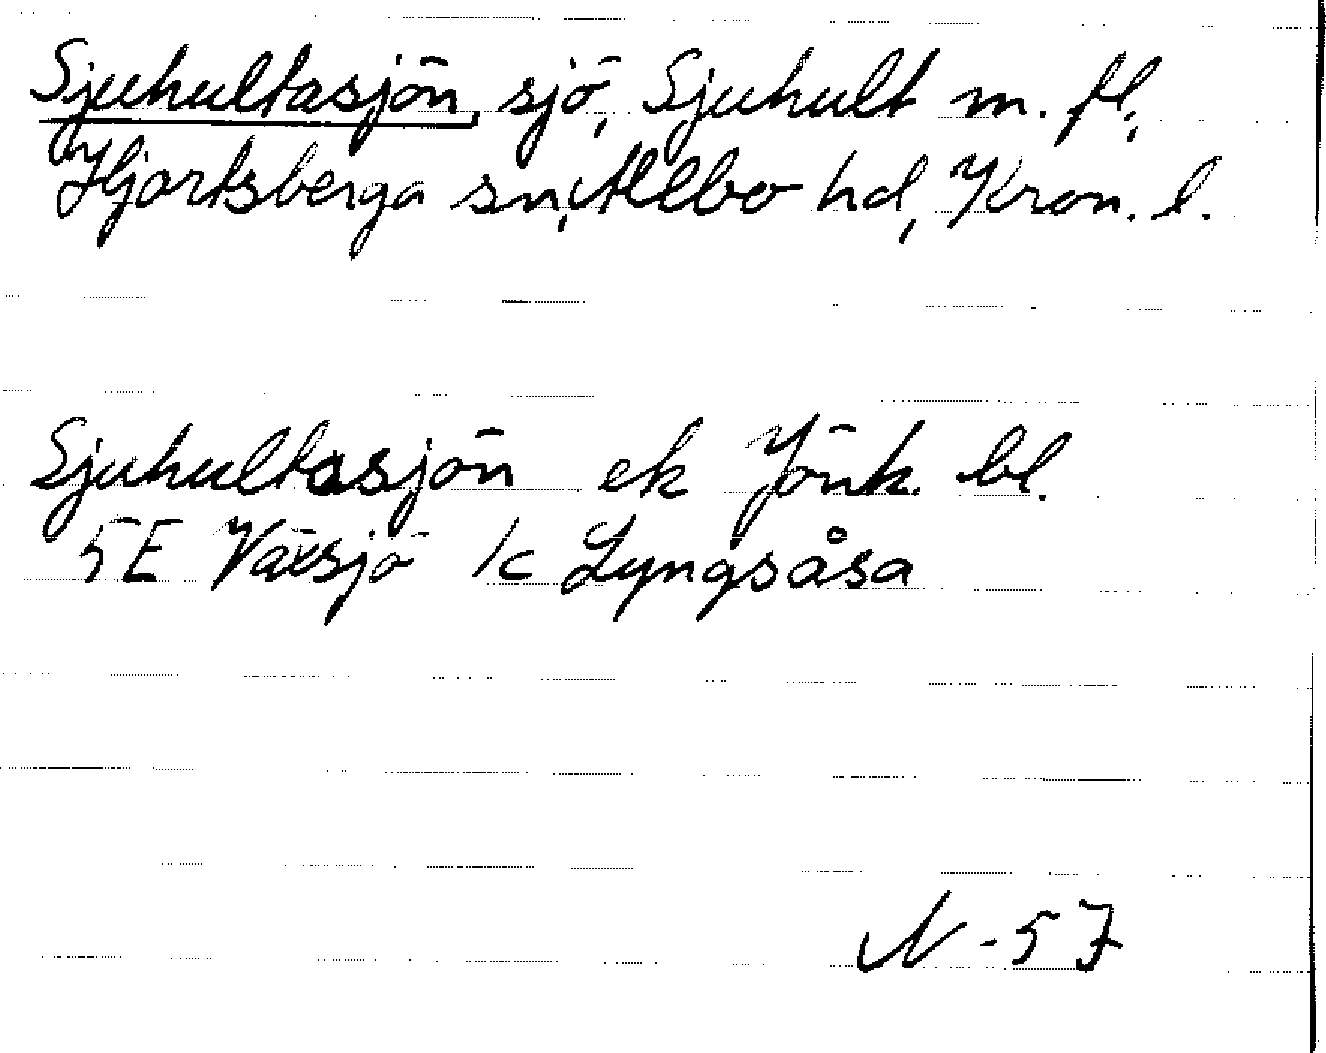 Sjuhultasjön, sjö, Sjuhult m. fl.,
Hjortsberga sn, Allbo hd, Kron. l.
Sjuhultasjön ek Jönk. bl.
5E Växsjö 1c Lyngsåsa
N - 57